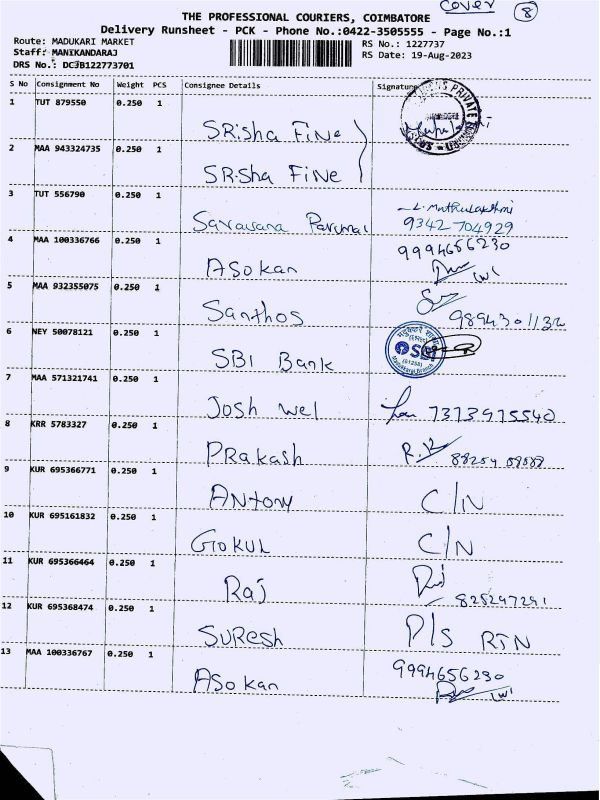 cover
8
THE PROFESSIONAL COURIERS, COIMBATORE
Delivery Runsheet - PCK - Phone No.:0422-3505555 - Page No.:1
Route: MADUKARI MARKET RS No.: 1227737
Staff: MANIKANDARAJ RS Date: 19-Aug-2023
DRS No.: DC3B122773701
S No Consignment No Weight PCS Consignee Details Signature
1 TUT 879550 0.250 1 SRisha FiNe
2 MAA 943324735 0.250 1 SRisha FiNe
3 TUT 556790 0.250 1 Saravana Parumal L. Muthulakshmi
9342704929
4 MAA 100336766 0.250 1 ASokan 9994656230
5 MAA 932355075 0.250 1 Santhos 9894301132
6 NEY 50078121 0.250 1 SBI Bank SBI
7 MAA 571321741 0.250 1 Josh wel 7373975540
8 KRR 5783327 0.250 1 PRakash R.K
9 KUR 695366771 0.250 1 ANtony C/N
10 KUR 695161832 0.250 1 GOKUL C/N
11 KUR 695366464 0.250 1 Raj 825297291
12 KUR 695368474 0.250 1 SUResh P/S RTN
13 MAA 100336767 0.250 1 ASokan 9994656230